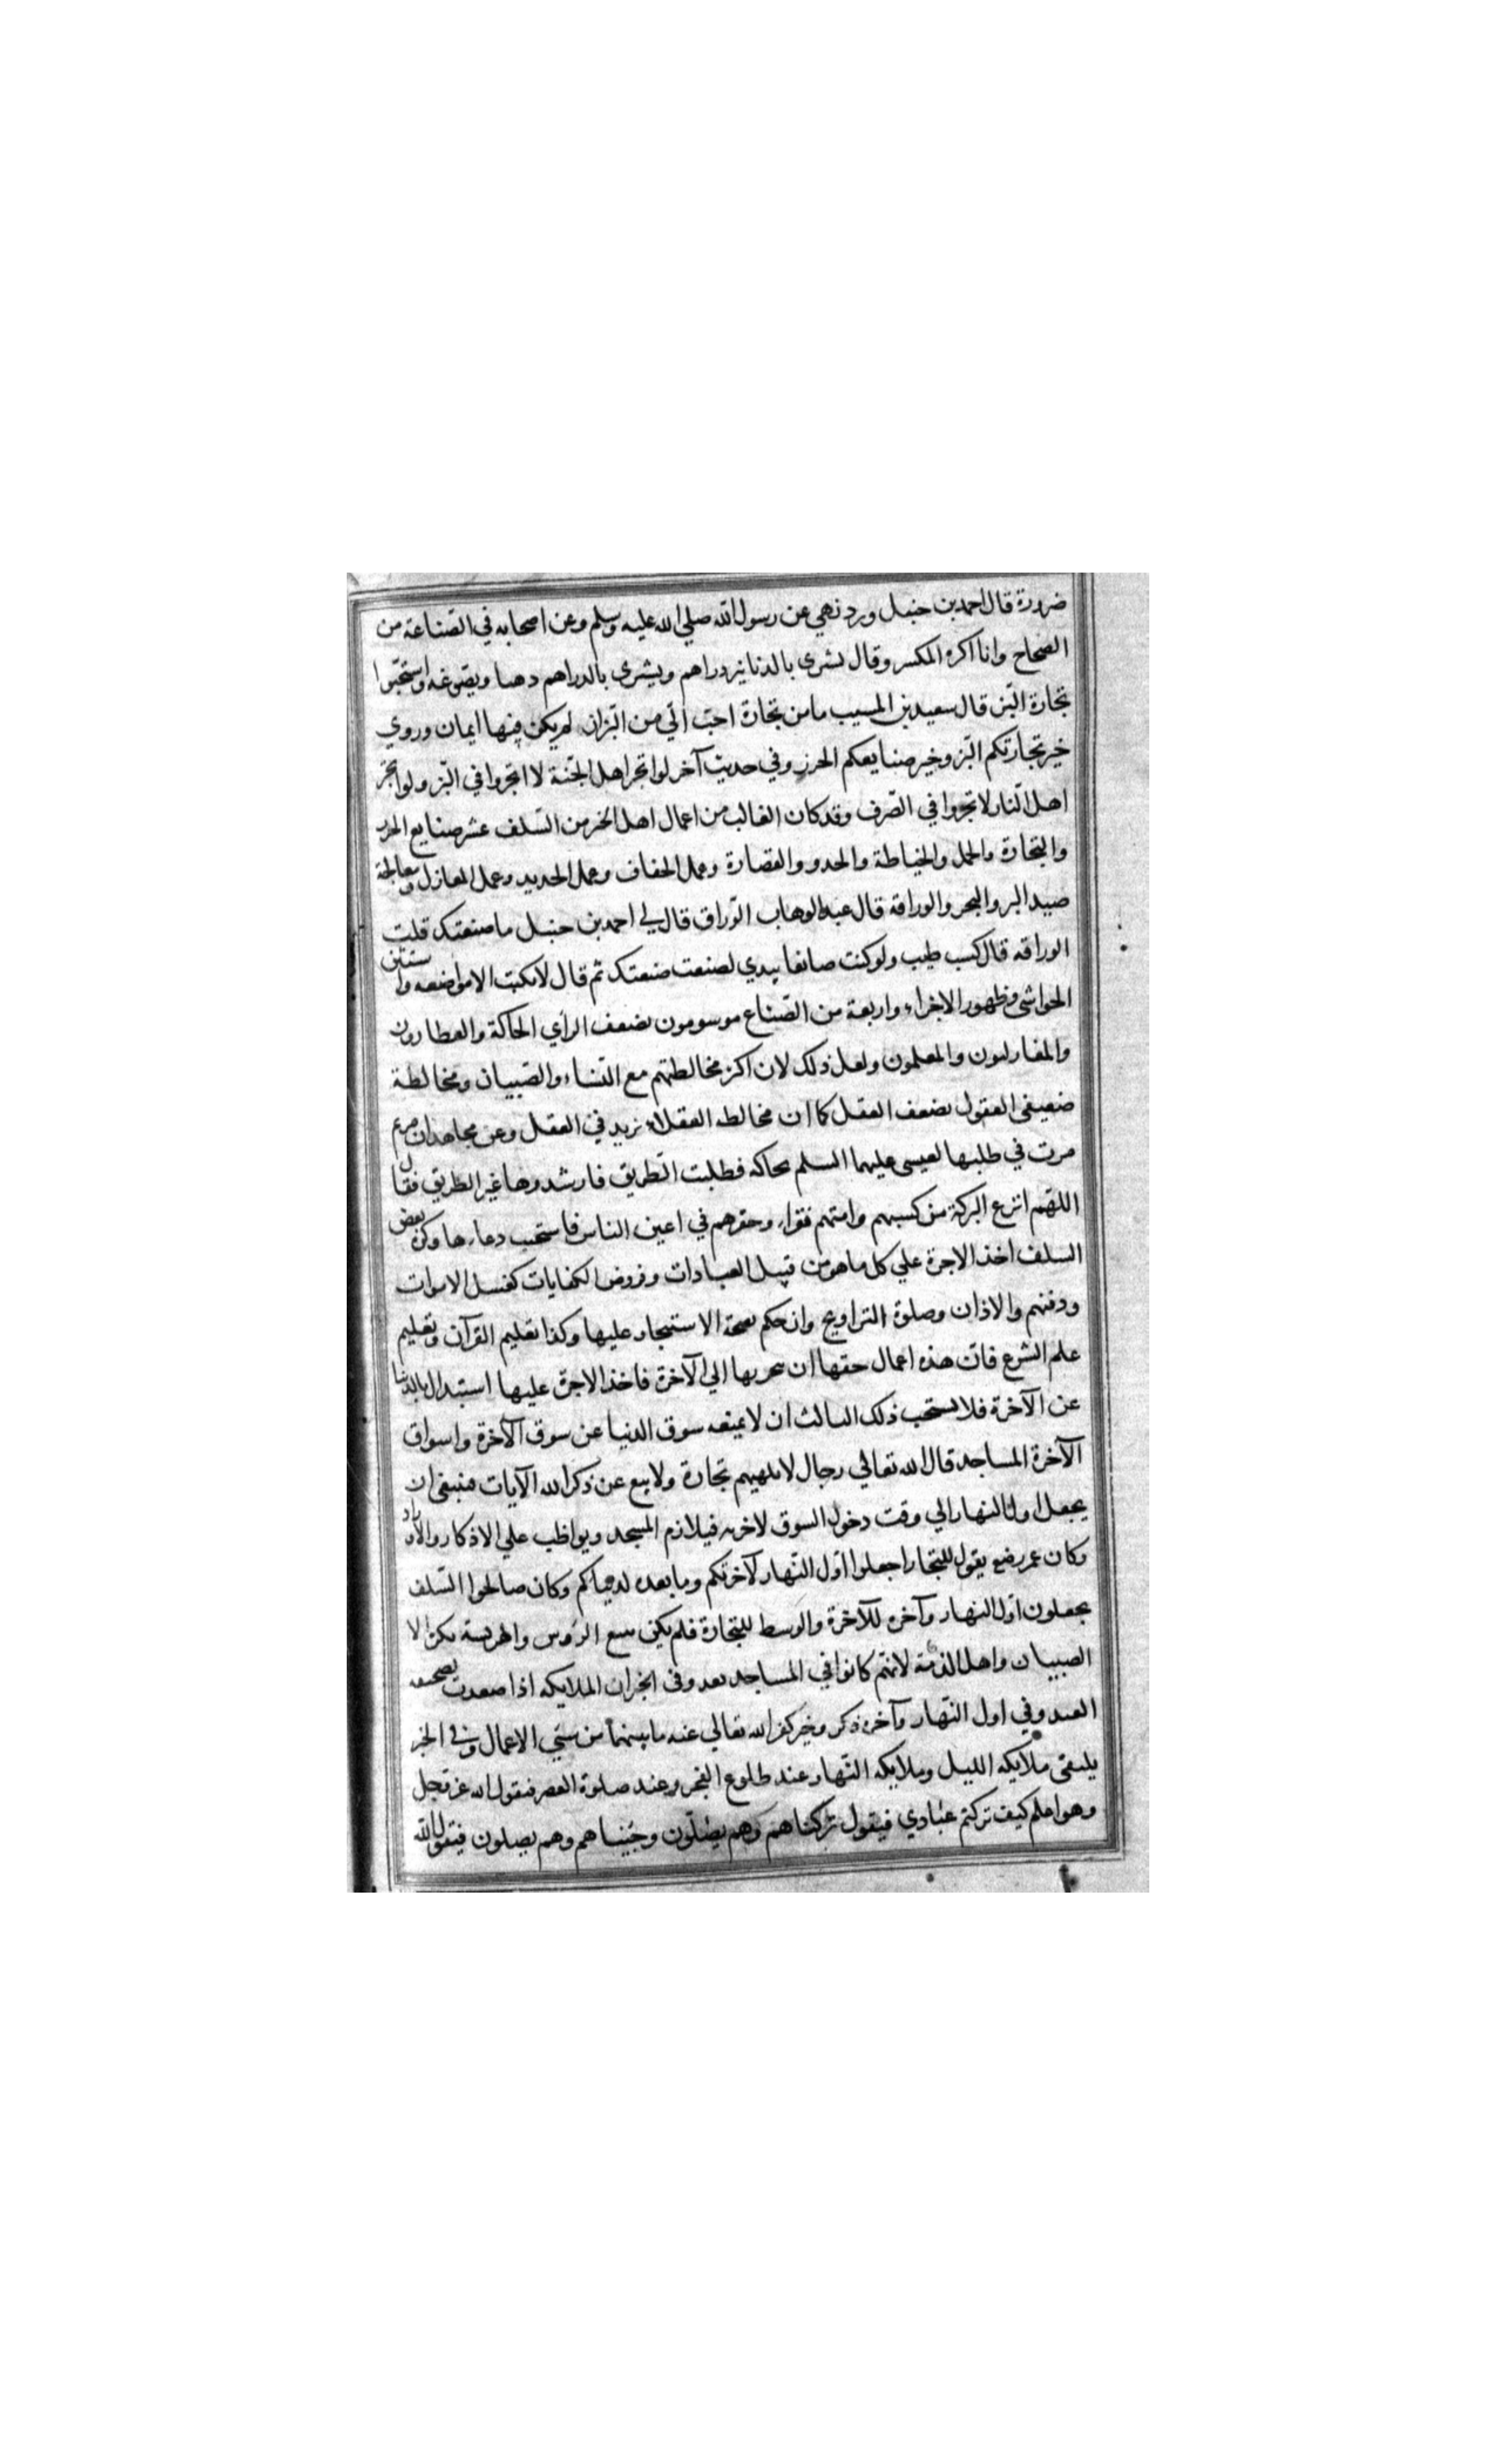 ضرورة قال احمد بن حنبل ورد نهي عن رسول الله صلي الله عليه وسلم وعن اصحابه في الصناعة من
الصحاح وانا اكره المكسر وقال يشرى بالدنانير دراهم ويشرى بالدراهم دهبا ويصوغه واستحبوا
تجارة البز قال سعيد بن المسيب ما من تجارة احب الي من البز ان لم يكن فيها ايمان وروي
خير تجارتكم البز وخير صنايعكم الخرز وفي حديث آخر لو اتجر اهل الجنة لاتجروا في البز ولو اتجر
اهل النار لاتجروا في الصرف وقد كان الغالب من اعمال اهل الخير من السلف عشر صنايع الخرز
والتجارة والحمل والخياطة والحدو والقصارة وعمل الخفاف وعمل الحديد وعمل المغازل ومعالجة
صيد البر والبحر والوراقه قال عبد الوهاب الوراق قال لي احمد بن حنبل ما صنعتك قلت
الوراقه قال كسب طيب ولو كنت صانعا بيدي لصنعت صنعتك ثم قال لا تكتب الا مواضعه واستثن
الحواشي وظهور الاجزاء واربعة من الصناع موسومون بضعف الراي الحاكة والعطارون
والمغازليون والمعلمون ولعل ذلك لان اكثر مخالطتهم مع النساء والصبيان ومخالطة
ضعيفي العقول يضعف العقل كما ان مخالطه العقلاء يزيد في العقل وعن مجاهد ان مريم
مرت في طلبها لعيسى عليهما السلم بحاكه فطلبت الطريق فارشدوها غير الطريق فقال
اللهم انزع البركة من كسبهم وامتهم فقراء وحقرهم في اعين الناس فاستجيب دعاءها وكره بعض
السلف اخذ الاجرة علي كل ما هو من قبيل العبادات وفروض الكفايات كغسل الاموات
ودفنهم والاذان وصلوة التراويح وان حكم بصحة الاستيجار عليها وكذا تعليم القرآن وتعليم
علم الشرع فان هذه اعمال حقها ان يتجر بها الي الآخرة فاخذ الاجرة عليها استبدال بالدنيا
عن الآخرة فلا يستحب ذلك الثالث ان لا يمنعه سوق الدنيا عن سوق الآخرة واسواق
الآخرة المساجد قال الله تعالي رجال لا تلهيهم تجارة ولا بيع عن ذكر الله الآيات فينبغي ان
يجعل اول النهار الي وقت دخول السوق لاخرته فيلازم المسجد ويواظب علي الاذكار والاوراد
وكان عمر رضع يقول للتجار اجعلوا اول النهار لآخرتكم وما بعده لدنياكم وكان صالحوا السلف
يجعلون اول النهار وآخره للآخرة والوسط للتجارة فلم يكن يبيع الرؤس والهريسة بكرة الا
الصبيان واهل الذمة لانهم كانوا في المساجد بعد وفي الخبر ان الملايكه اذا صعدت بصحيفه
العبد وفي اول النهار وآخره ذكر وخير كفر الله تعالي عنه ما بينهما من سيي الاعمال وفي الخبر
يلتقي ملايكه الليل وملايكه النهار عند طلوع الفجر وعند صلوة العصر فيقول الله عز وجل
وهو اعلم كيف تركتم عبادي فيقول تركناهم وهم يصلون وجيناهم وهم يصلون فيقول الله